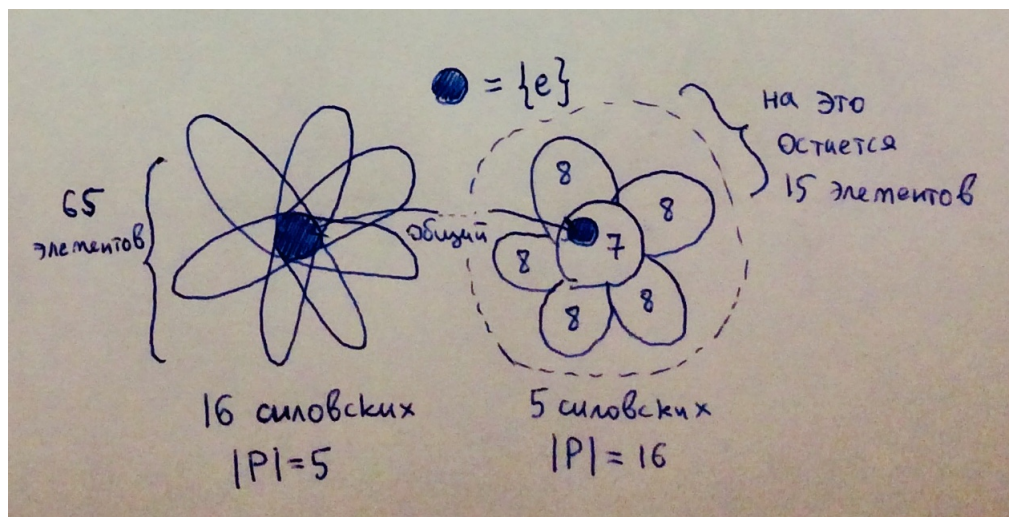 = {e}
на это
остается
15 элементов
65
элементов
общий
8
8
8
7
8
8
16 силовских
|P|=5
5 силовских
|P|=16